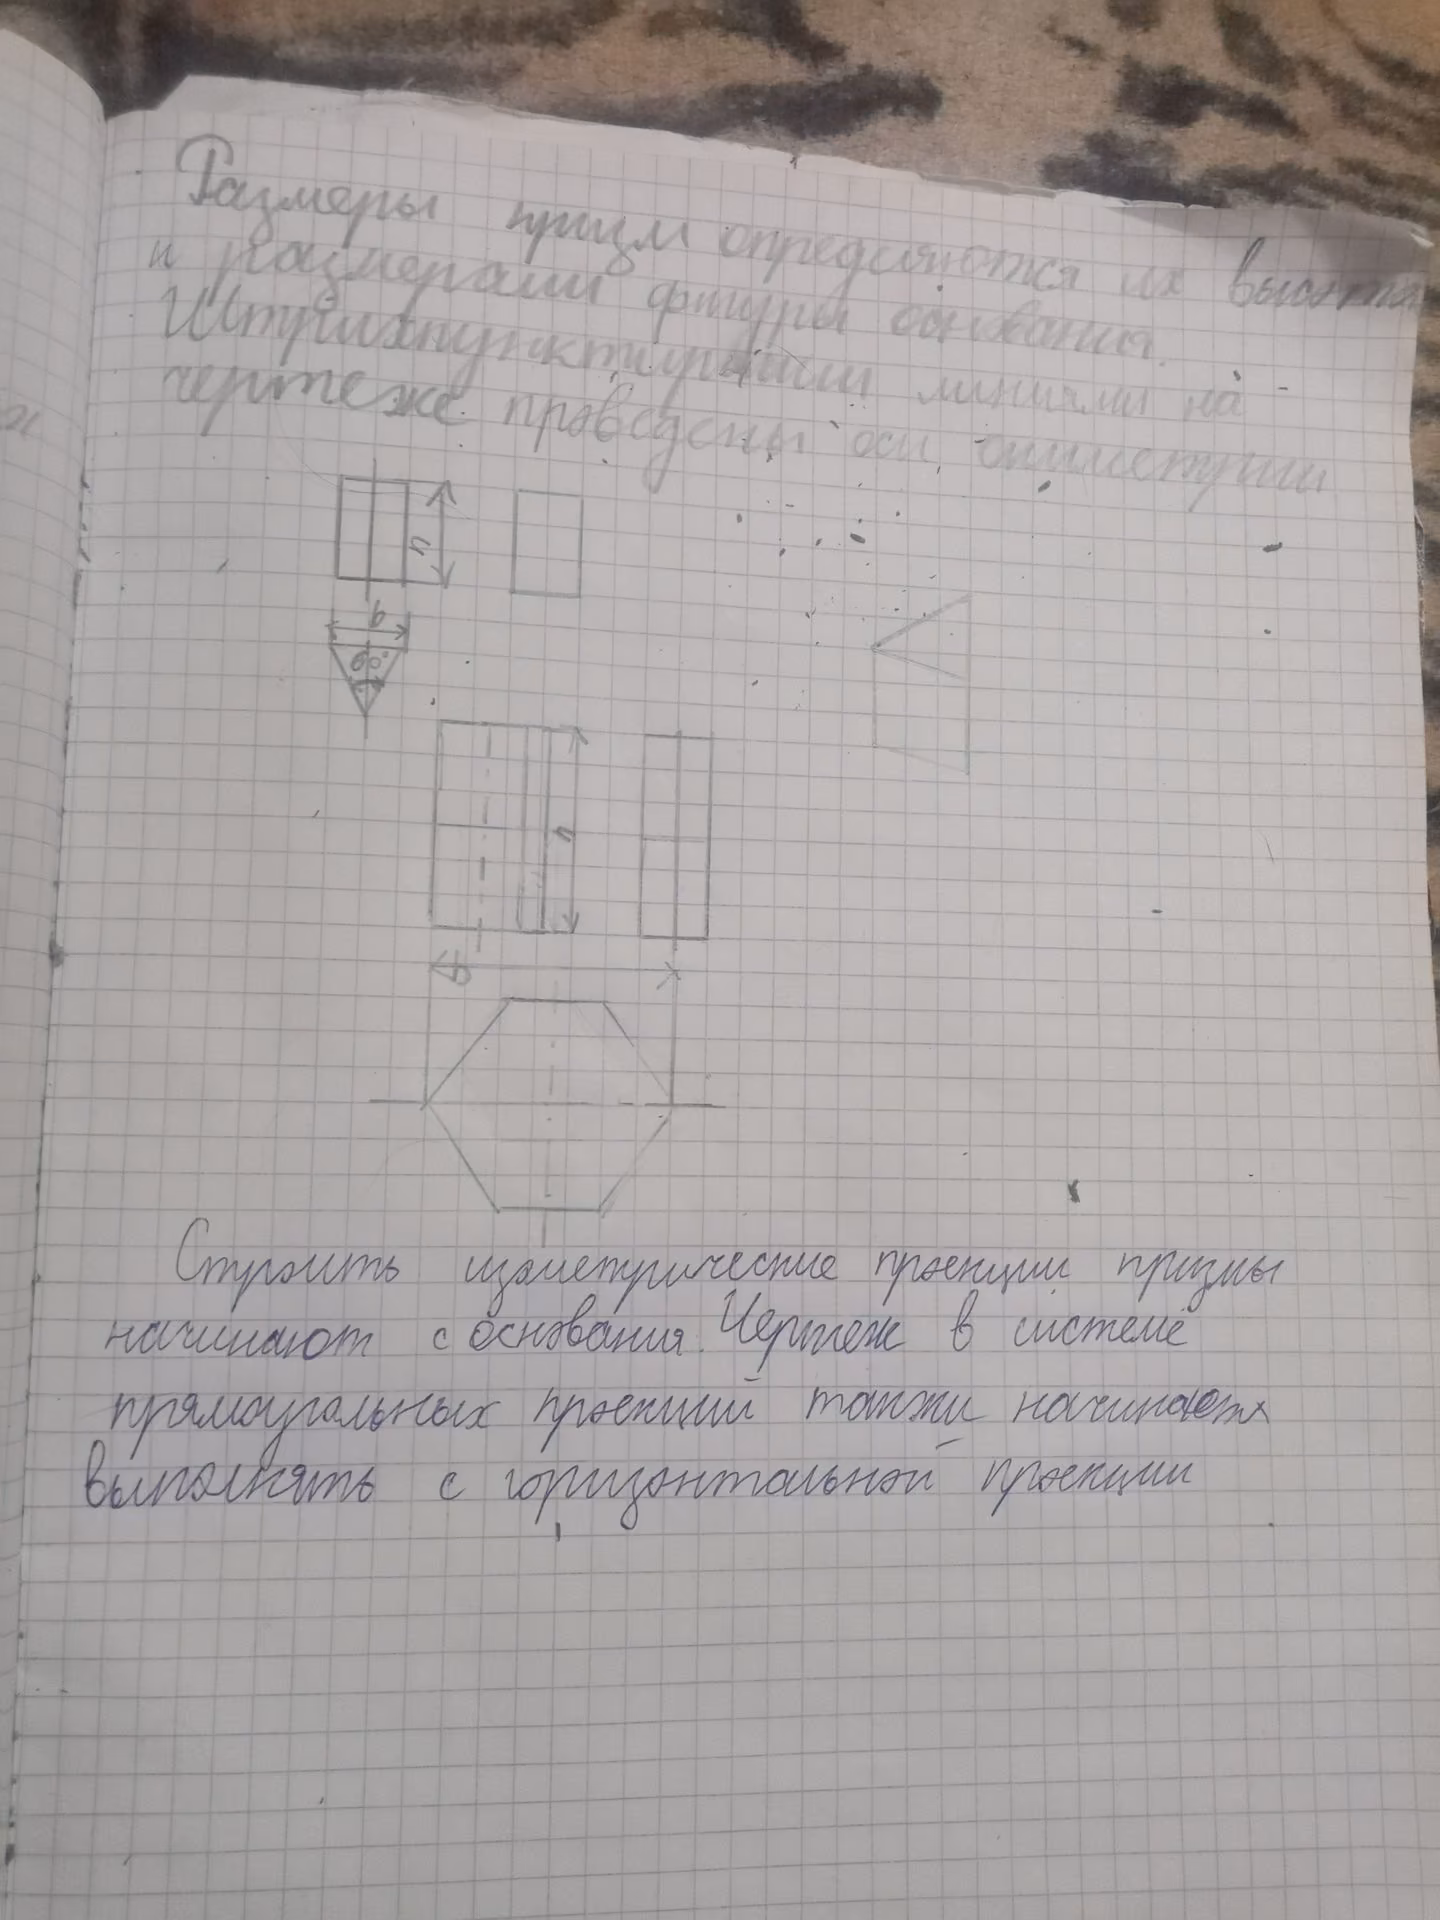 Размеры призм определяются их высотой
и размерами фигуры основания.
Штрихпунктирными линиями на
чертеже проведены оси симетрии
h
b
60°
h
Строить изометрические проекции призмы
начинают с основания. Чертеж в системе
прямоугольных проекций также начинают
выполнять с горизонтальной проекции